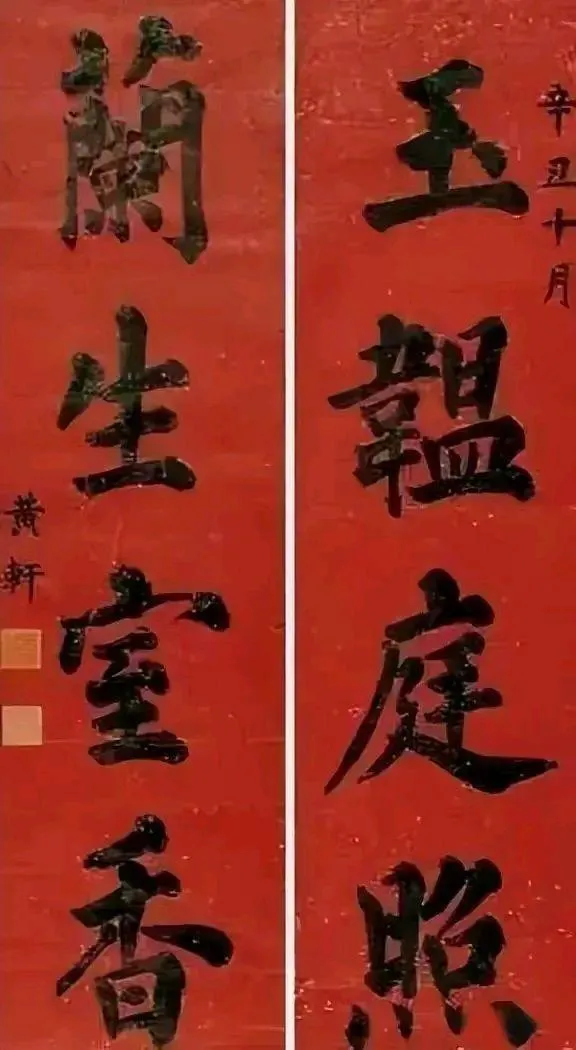 辛丑十月
玉韞庭照
蘭生室香
黄軒